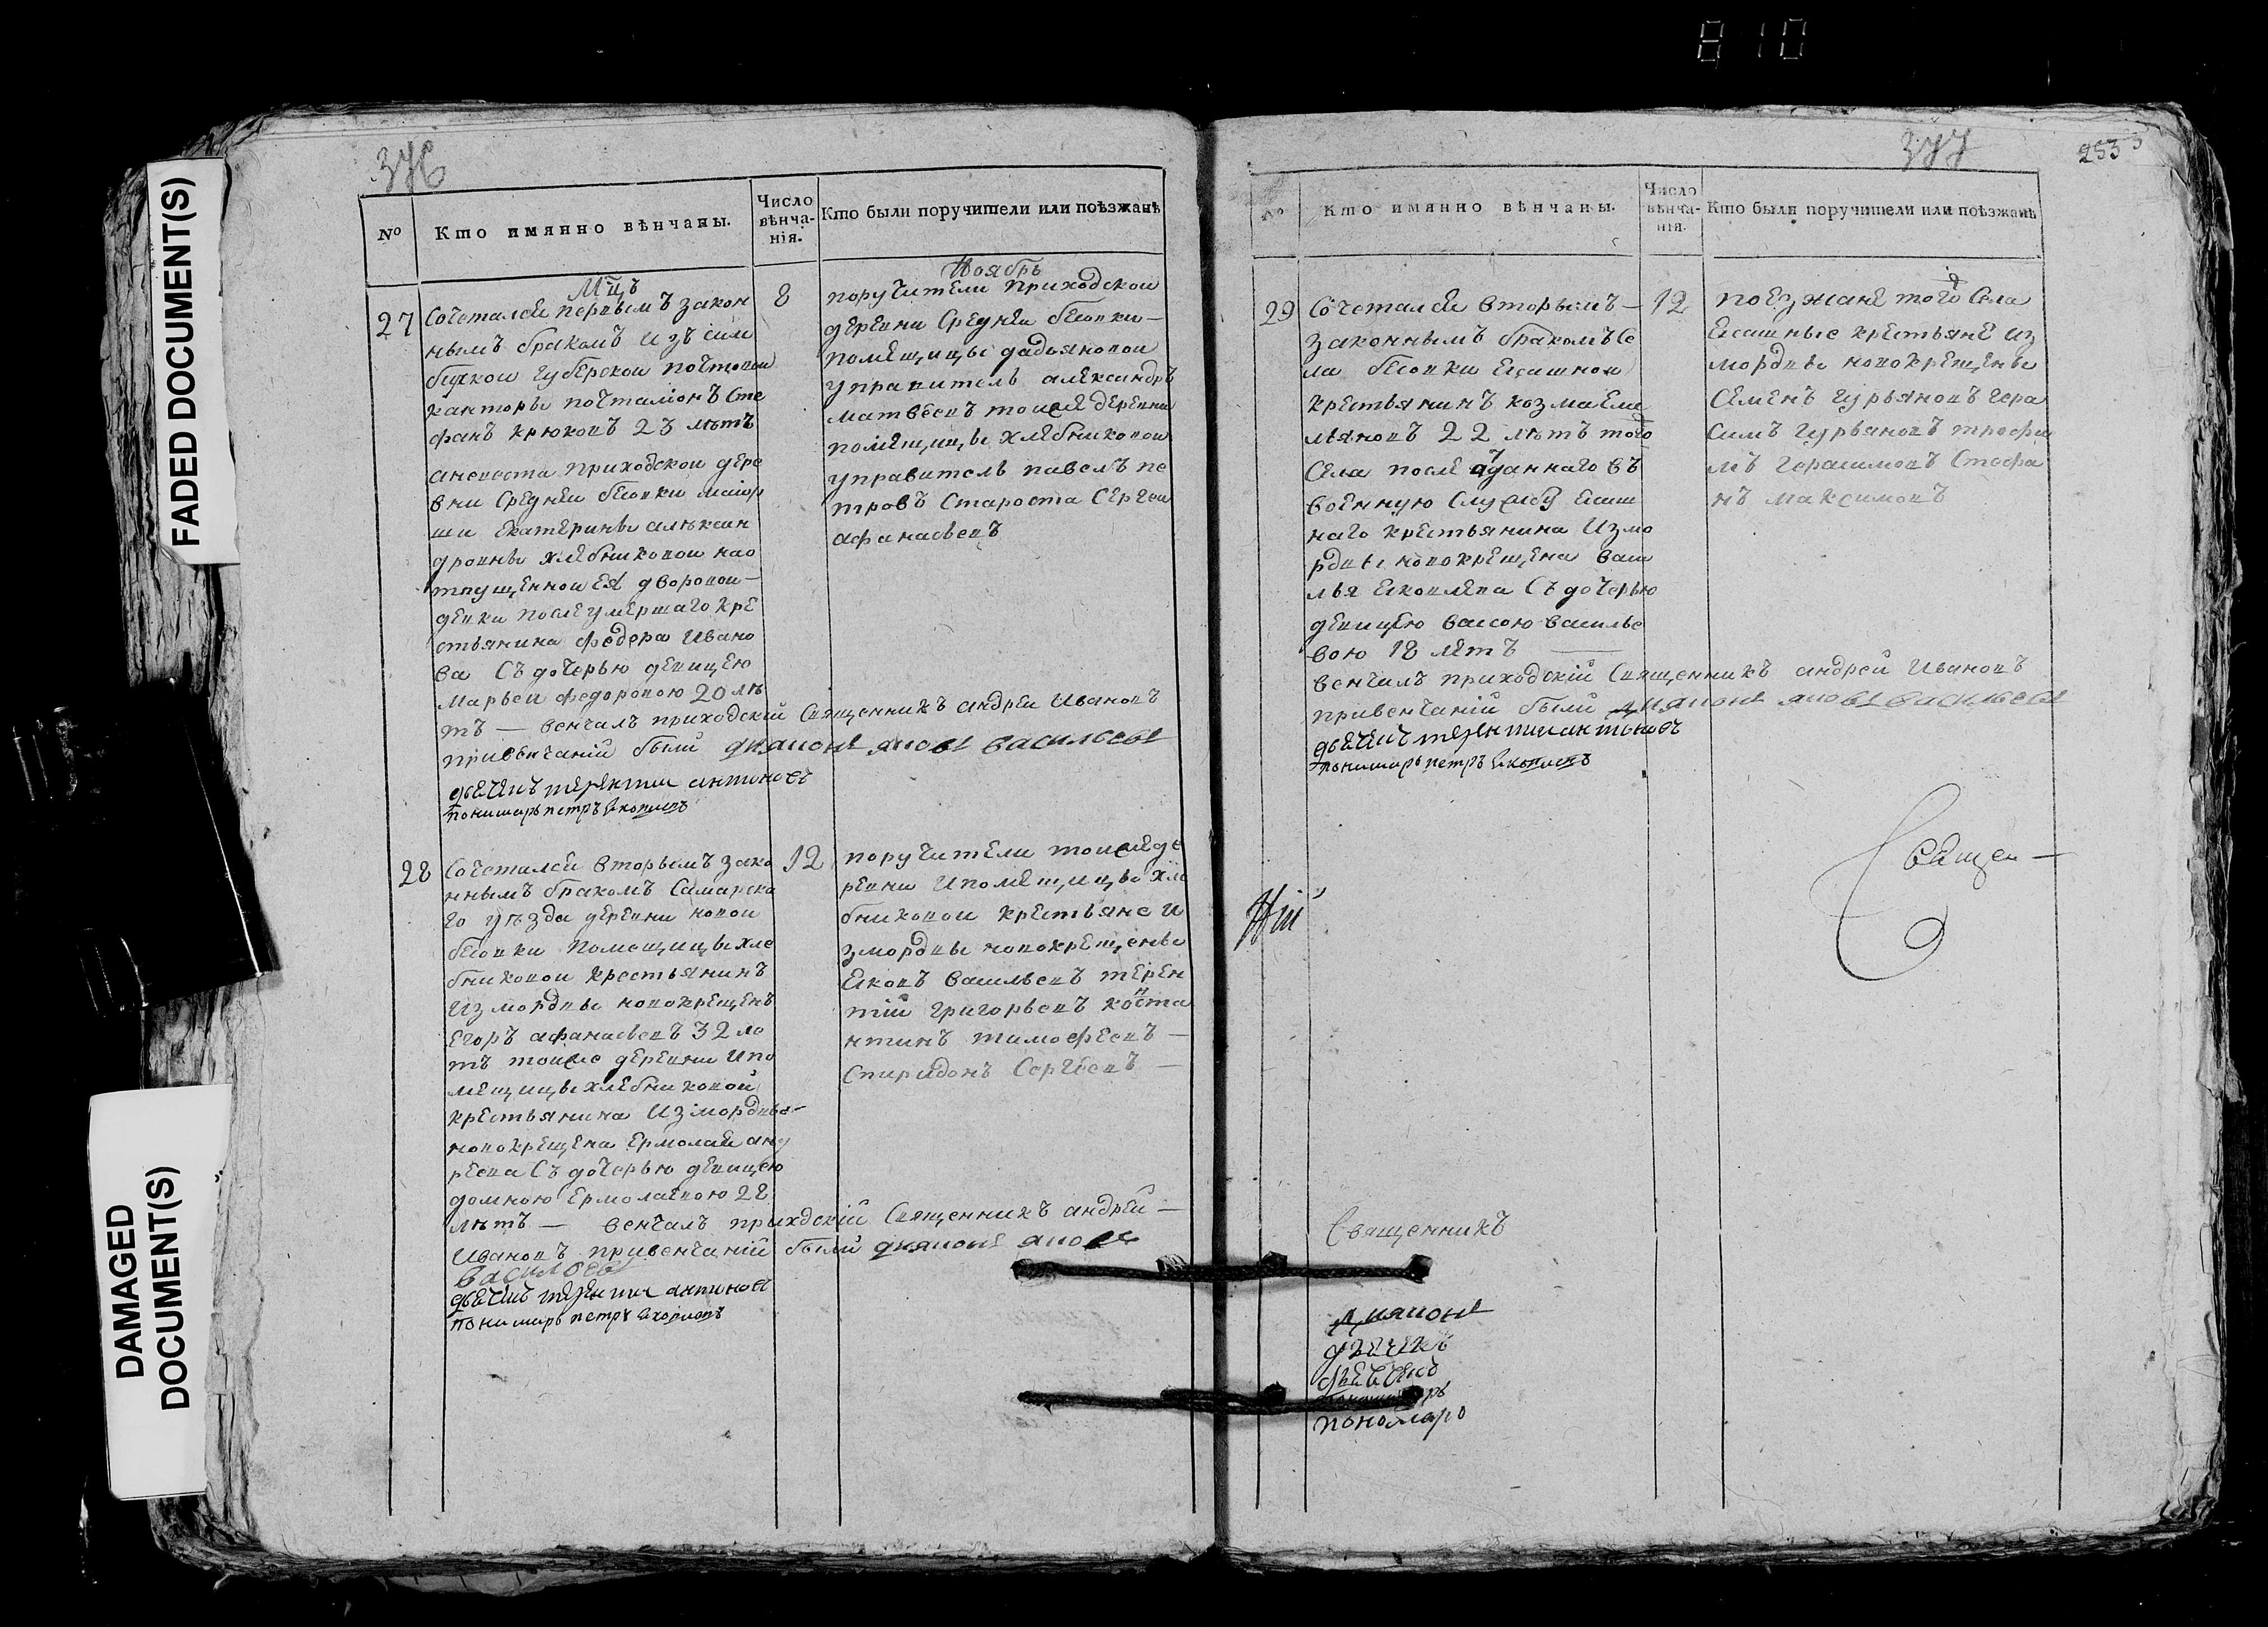 810
FADED DOCUMENT(S)
DAMAGED
DOCUMENT(S)
376
№
Кто имянно вѣнчаны.
Число
вѣнча-
нія.
Кто были поручители или поѣзжанѣ
Мцъ
Ноябрь
27
Сочетался первымъ закон
нымъ бракомъ изъ сим
бирской губерской почтовой
канторы почталіонъ Сте
фанъ Крюковъ 23 лѣтъ
аневеста приходской дере
вни средней бесовки маіор
ши Екатерины алѣксан
дровны хлебниковой нао
тпущенной ея дворовой —
девки после умершаго кре
стьянина федера Ивано
ва Съ дочерью девицею
Марьей федоровою 20 лѣ
тъ — венчалъ приходскій Священникъ андрей Ивановъ
привенчаній были диаконъ яковъ васильевъ
дьячекъ терентии антоновъ
пономарь петръ Яковлевъ
8
поручители приходской
деревни Средней бесовки —
помещицы дадьяновой
управитель александръ
матвеевъ тойже деревни
помещицы хлебниковой
управитель павелъ пе
тровъ Староста Сергей
афанасьевъ
28
Сочетался вторымъ зако
ннымъ бракомъ Самарска
го уѣзда деревни новой
бесовки помещицы хле
бниковой крестьянинъ
из мордвы новокрещенъ
Егоръ афанасьевъ 32 ле
тъ тойже деревни и по
мещицы хлебниковой
крестьянина из мордвы —
новокрещена Ермолая анд
реева Съ дочерью девицею
домною Ермолаевою 28
лѣтъ — венчалъ прихдскій Священникъ андрей —
Ивановъ привенчаній были диаконъ яковъ
васильевъ
дьячекъ терентии антоновъ
пономарь петръ Яковлевъ
12
поручители тойже де
ревни и помещицы хле
бниковой крестьяне и
змордвы новокрещены
Яковъ Васильевъ терен
тій григорьевъ коста
нтинъ тимофеевъ —
Спиридонъ Сергеевъ —
377
253
№
Кто имянно вѣнчаны.
Число
вѣнча-
нія.
Кто были поручители или поѣзжанѣ
29
Сочетался вторымъ —
законнымъ бракомъ Се
ла бесовки ясашной
крестьянинъ козма Еме
льяновъ 22 лѣтъ того
Села после отданнаго въ
военную Службу ясаш
наго крестьянина Измо
рдвы новокрещена васи
лья яковлева Съ дочерью
девицею васою василье
вою 18 летъ —
венчалъ приходскій Священникъ андрей Ивановъ
привенчаній были диаконъ яковъ васильевъ
дьячекъ терентии антоновъ
пономарь петръ Яковлевъ
12
поезжане того Села
ясашные крестьяне из
мордвы новокрещены
Семенъ гурьяновъ гера
симъ гурьяновъ трофи
мъ герасимовъ Стефа
нъ максимовъ
Священ —
Священникъ
диаконъ
дьячекъ
дьячекъ
пономарь